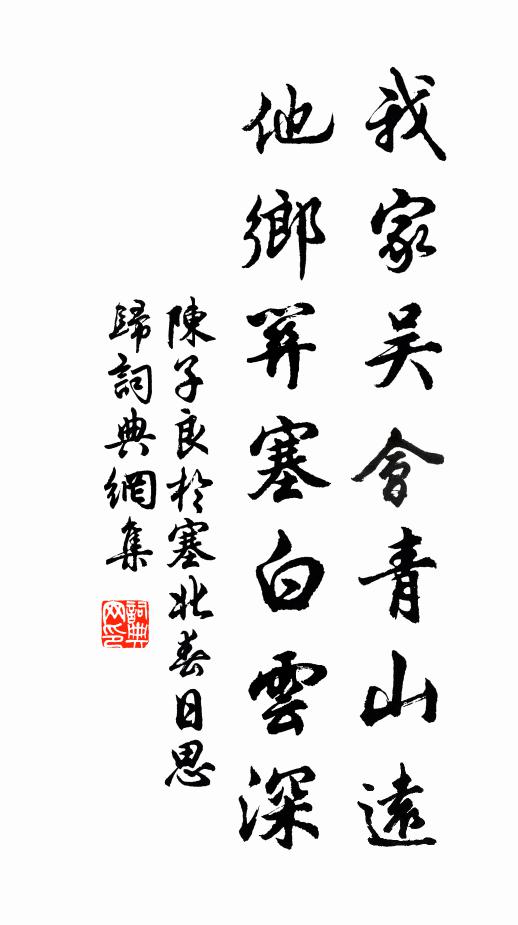 我家吳會青山遠
他鄉關塞白雲深
陳子良於塞北春日思
歸詞典網集
詞典网印